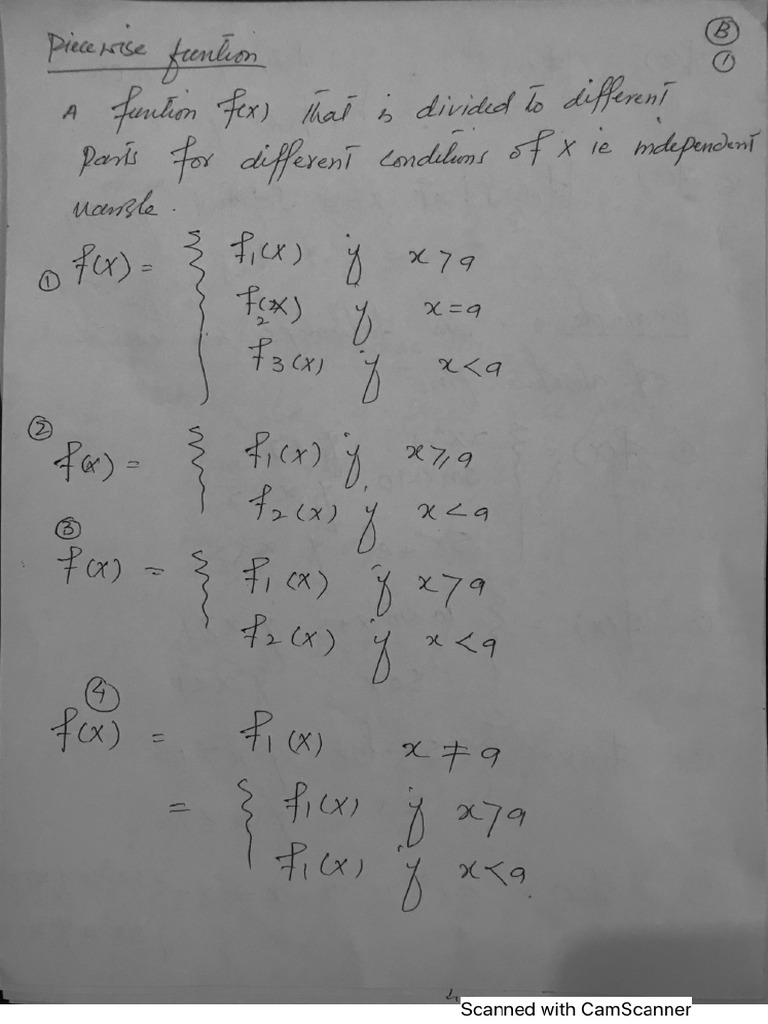 Piecewise funtion
Ⓑ
①
A funtion f(x) that is divided to different
parts for different conditions of x ie independent
varible.
① f(x) = { f₁(x) if x > a
f₂(x) if x = a
f₃(x) if x < a
② f(x) = { f₁(x) if x ≥ a
f₂(x) if x < a
③ f(x) = { f₁(x) if x > a
f₂(x) if x < a
④ f(x) = f₁(x) x ≠ a
= { f₁(x) if x > a
f₁(x) if x < a.
Scanned with CamScanner